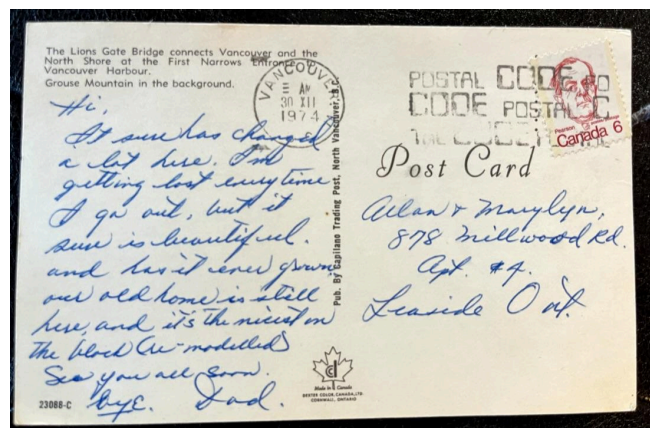 The Lions Gate Bridge connects Vancouver and the
North Shore at the First Narrows Entrance
Vancouver Harbour.
Grouse Mountain in the background.
VANCOUVER
AM
30 XII
1974
POSTAL CODE
CODE POSTAL
Pearson
Canada 6
Post Card
Hi,
It sure has changed
a lot here. I'm
getting lost everytime
I go out, but it
sure is beautiful.
and has it ever grown
our old home is still
here, and it's the nicest on
the block (re-modelled)
See you all soon.
bye. Dad.
Pub. By Capilano Trading Post, North Vancouver, B.C.
Allan & Marylyn,
878 Millwood Rd.
Apt. #4.
Leaside Ont.
Made in Canada
DEXTER COLOR, CANADA, LTD.
CORNWALL, ONTARIO
23088-C